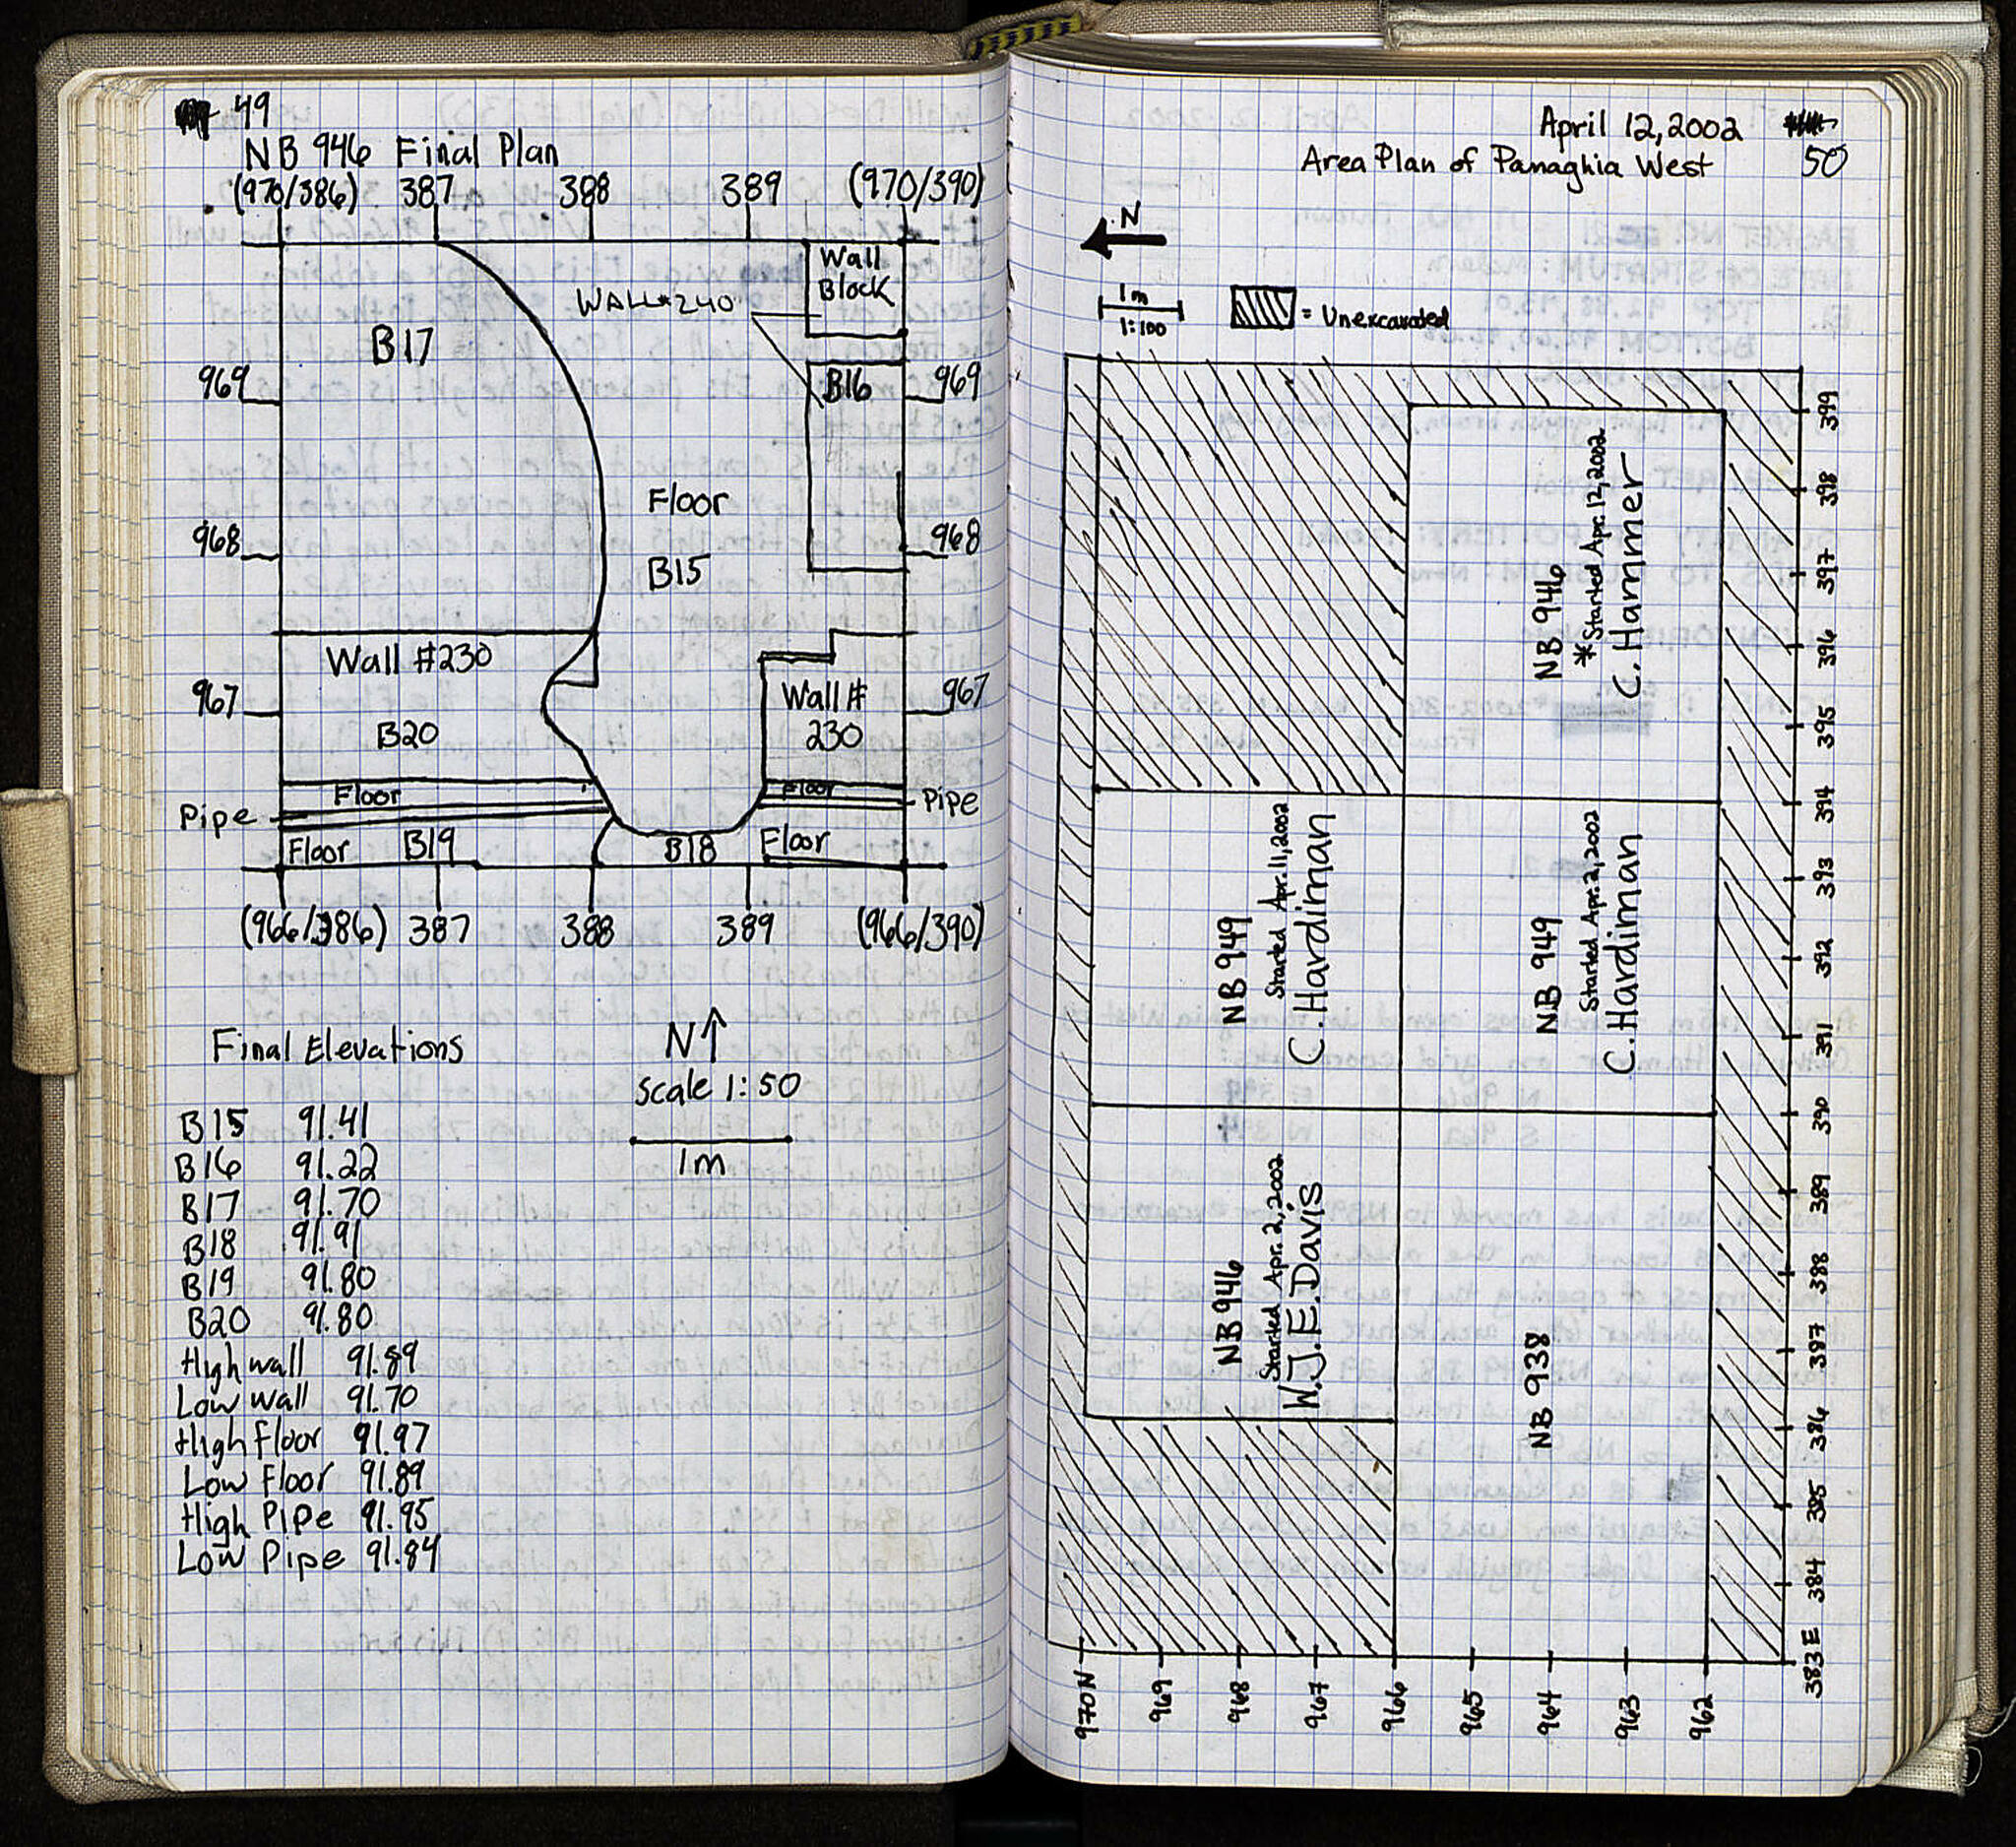 49
NB 946 Final Plan
(970/386) 387 388 389 (970/390)
Wall
Block
WALL#240
B17
969
B16
969
Floor
968
968
B15
Wall #230
967
Wall #
967
B20
230
Floor
Floor
Pipe
Pipe
Floor B19
B18
Floor
(966/386) 387 388 389 (966/390)
Final Elevations
N↑
scale 1:50
1m
B15 91.41
B16 91.22
B17 91.70
B18 91.91
B19 91.80
B20 91.80
High wall 91.89
Low wall 91.70
High Floor 91.97
Low Floor 91.89
High Pipe 91.95
Low Pipe 91.84
April 12, 2002
50
Area Plan of Panaghia West
N
1m
1:100
= Unexcavated
NB 946
*Started Apr. 12, 2002
C. Hammer
NB 949
Started Apr. 11, 2002
C. Hardiman
NB 949
Started Apr. 2, 2002
C. Hardiman
NB 946
Started Apr. 2, 2002
W.J.E. Davis
NB 938
399
398
397
396
395
394
393
392
391
390
389
388
397
386
385
384
383 E
970N
969
968
967
966
965
964
963
962